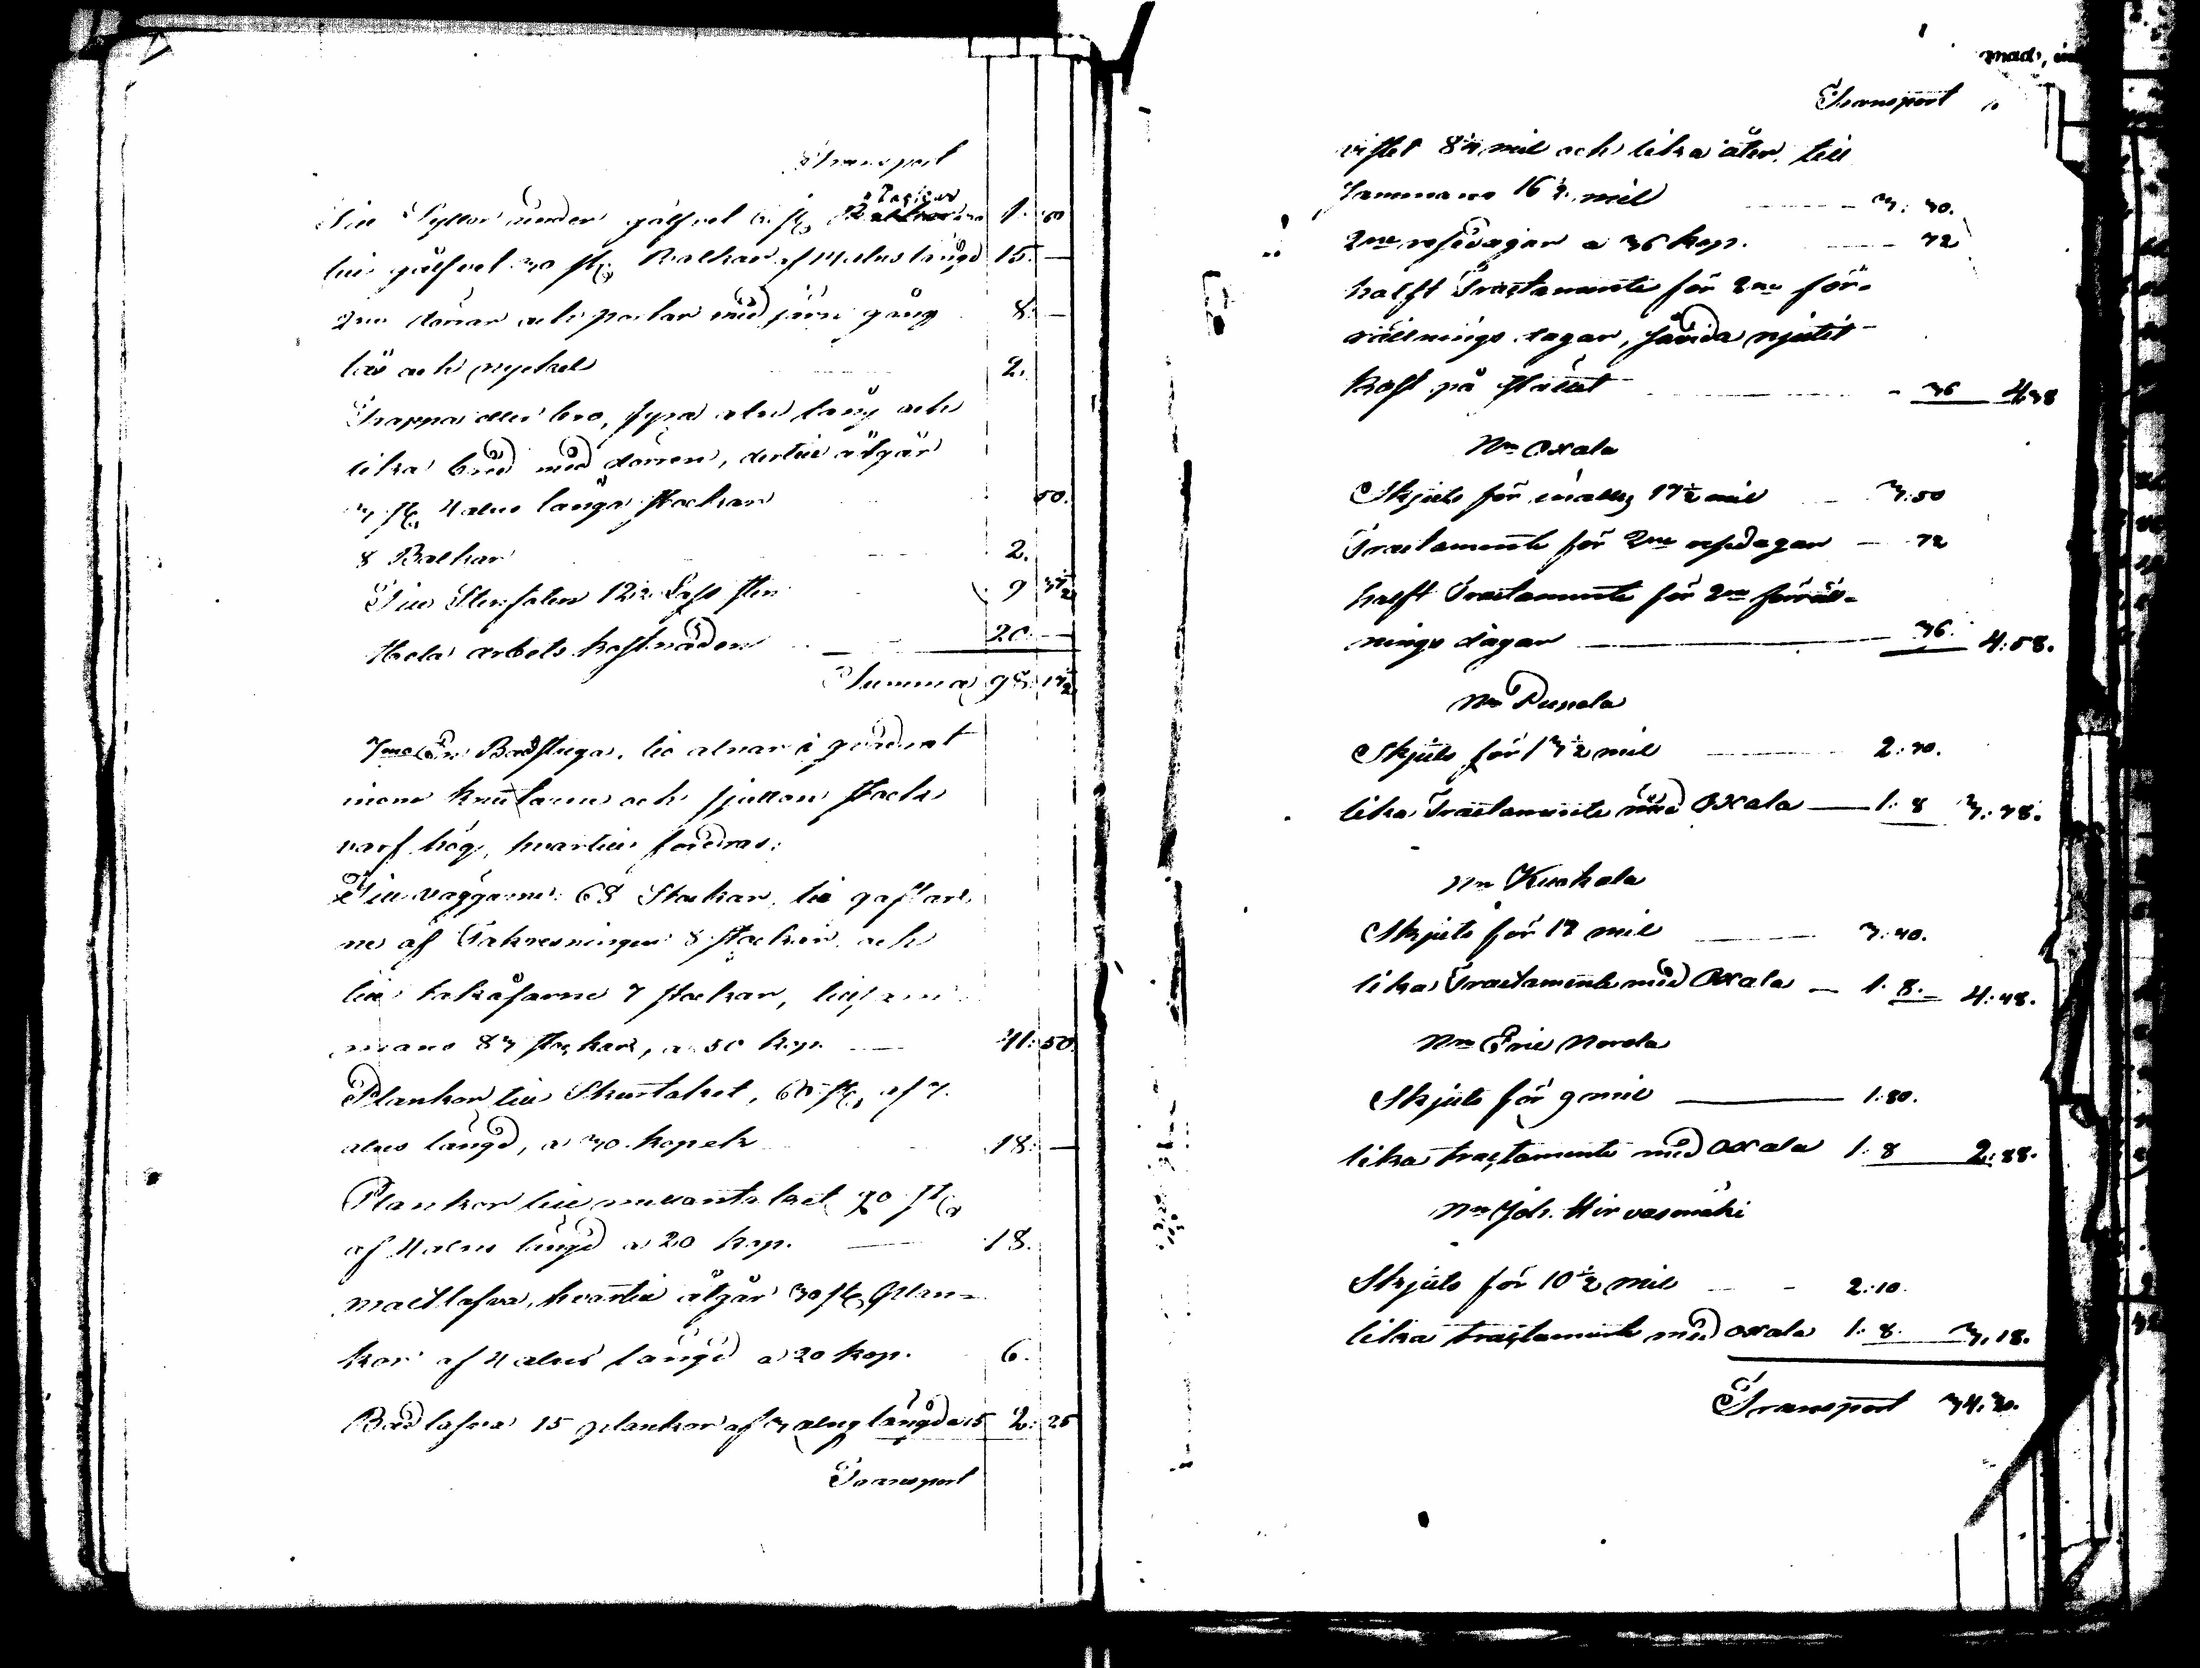 Transport
Till Syllor under gålfvet 6 st; Stockar 1. 50
till gålfvet 30 st; Balkar af 14 alns längd 15. —
2ne dörrar och portar med järn gång 8. —
lås och nyckel 2.
Trappa eller bro, fyra aln lång och
lika bred med dörren, dertill åtgår
3 st; 4 alns långa stockar 50.
8 Balkar 2.
Till Stenfoten 12½ Lass sten 9 37½
Hela arbets kostnaden 20. —
Summa 98. 17½
7mo En Badstuga, tio alnar i quadrat
inom knutarne och sjutton stock
varf hög, hvartill fordras:
Till väggarne 68 Stockar, till gaflar
ne af Takresningen 8 stockar och
till takåsarne 7 stockar, tillsam
mans 83 stockar, a 50 kop. — 41. 50.
Plankor till Skurtaket, 60 st; af 7.
alns längd, a 30 kopek 18. —
Plankor till mellantaket 90 st;
af 4 alns längd a 20 kop. — 18.
Maltlafva, hvartill åtgår 30 st; Plan-
kor af 4 alns längd a 20 kop. 6.
Badlafva 15 plankor af 3 alns längd a 15 2. 25
Transport
Transport
viftet 8¼ mil och lika åter, till
sammans 16½ mil 3: 30.
2ne resedagar a 36 kop. 72
halft Tractamente för 2ne för-
rättnings dagar, såvida njutit
kost på stället 36 4:38
Nm Oxala
Skjuts för inalles 17½ mil 3:50
Tractamente för 2ne resedagar — 72
halft Tractamente för 2ne förrätt-
nings dagar — 36. 4:58.
Nm Punola
Skjuts för 13½ mil 2:70.
lika Tractamente med Oxala — 1: 8 3:78.
Nm Kuokala
Skjuts för 17 mil 3:40.
lika Tractamente med Oxala — 1. 8. 4:48.
Nm Eric Norola
Skjuts för 9 mil — 1:80.
lika tractamente med Oxala 1: 8 2:88.
Nm Joh. Hirvasmäki
Skjuts för 10½ mil 2:10.
lika tractamente med oxala 1. 8. 3,18.
Transport 34,30.